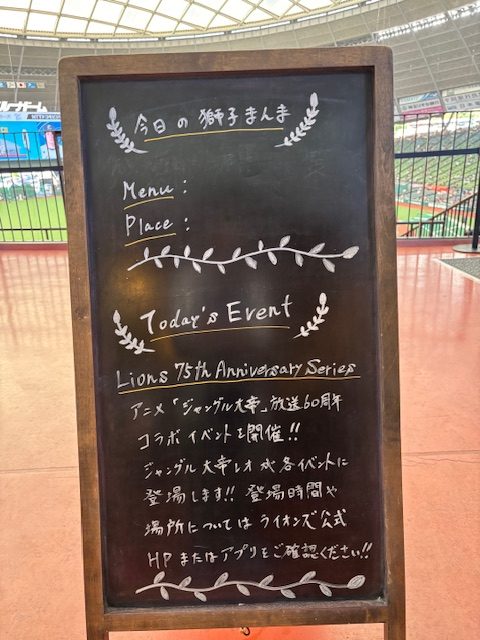 今日の獅子まんま
Menu :
Place :
Today's Event
Lions 75th Anniversary Series
アニメ「ジャングル大帝」放送60周年
コラボイベントを開催!!
ジャングル大帝レオが各イベントに
登場します!! 登場時間や
場所についてはライオンズ公式
HPまたはアプリをご確認ください!!